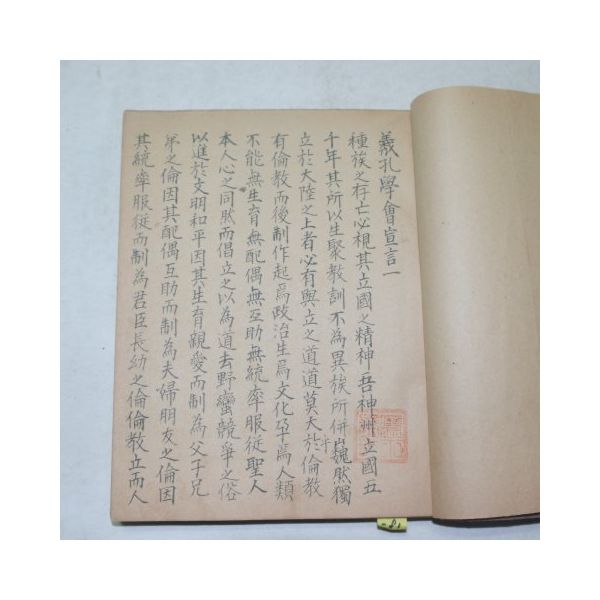 羲孔學會宣言一
種族之存亡必視其立國之精神吾神州立國五
千年其所以生聚教訓不為異族所併巍然獨
立於大陸之上者必有與立之道道莫大於倫教
有倫教而後制作起焉政治生焉文化孕焉人類
不能無生育無配偶無互助無統率服從聖人
本人心之同然而倡立之以為道去野蠻競爭之俗
以進於文明和平因其生育親愛而制為父子兄
弟之倫因其配偶互助而制為夫婦朋友之倫因
其統率服從而制為君臣長幼之倫倫教立而人